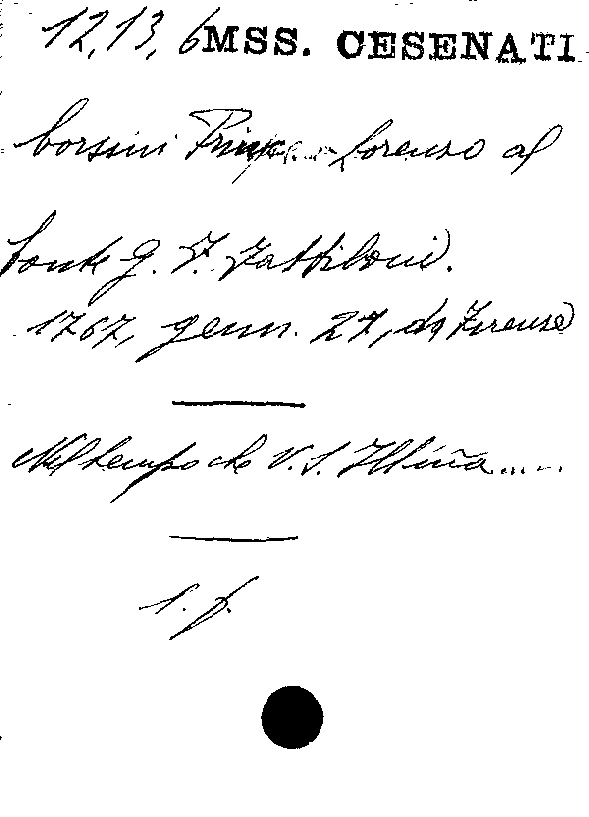 12,13,6 MSS. CESENATI
Corsini Principe Lorenzo al
Conte G. F. Fattiboni.
1767, genn. 27, da Firenze
Nel tempo che V. S. Ill.ma.....
s. f.